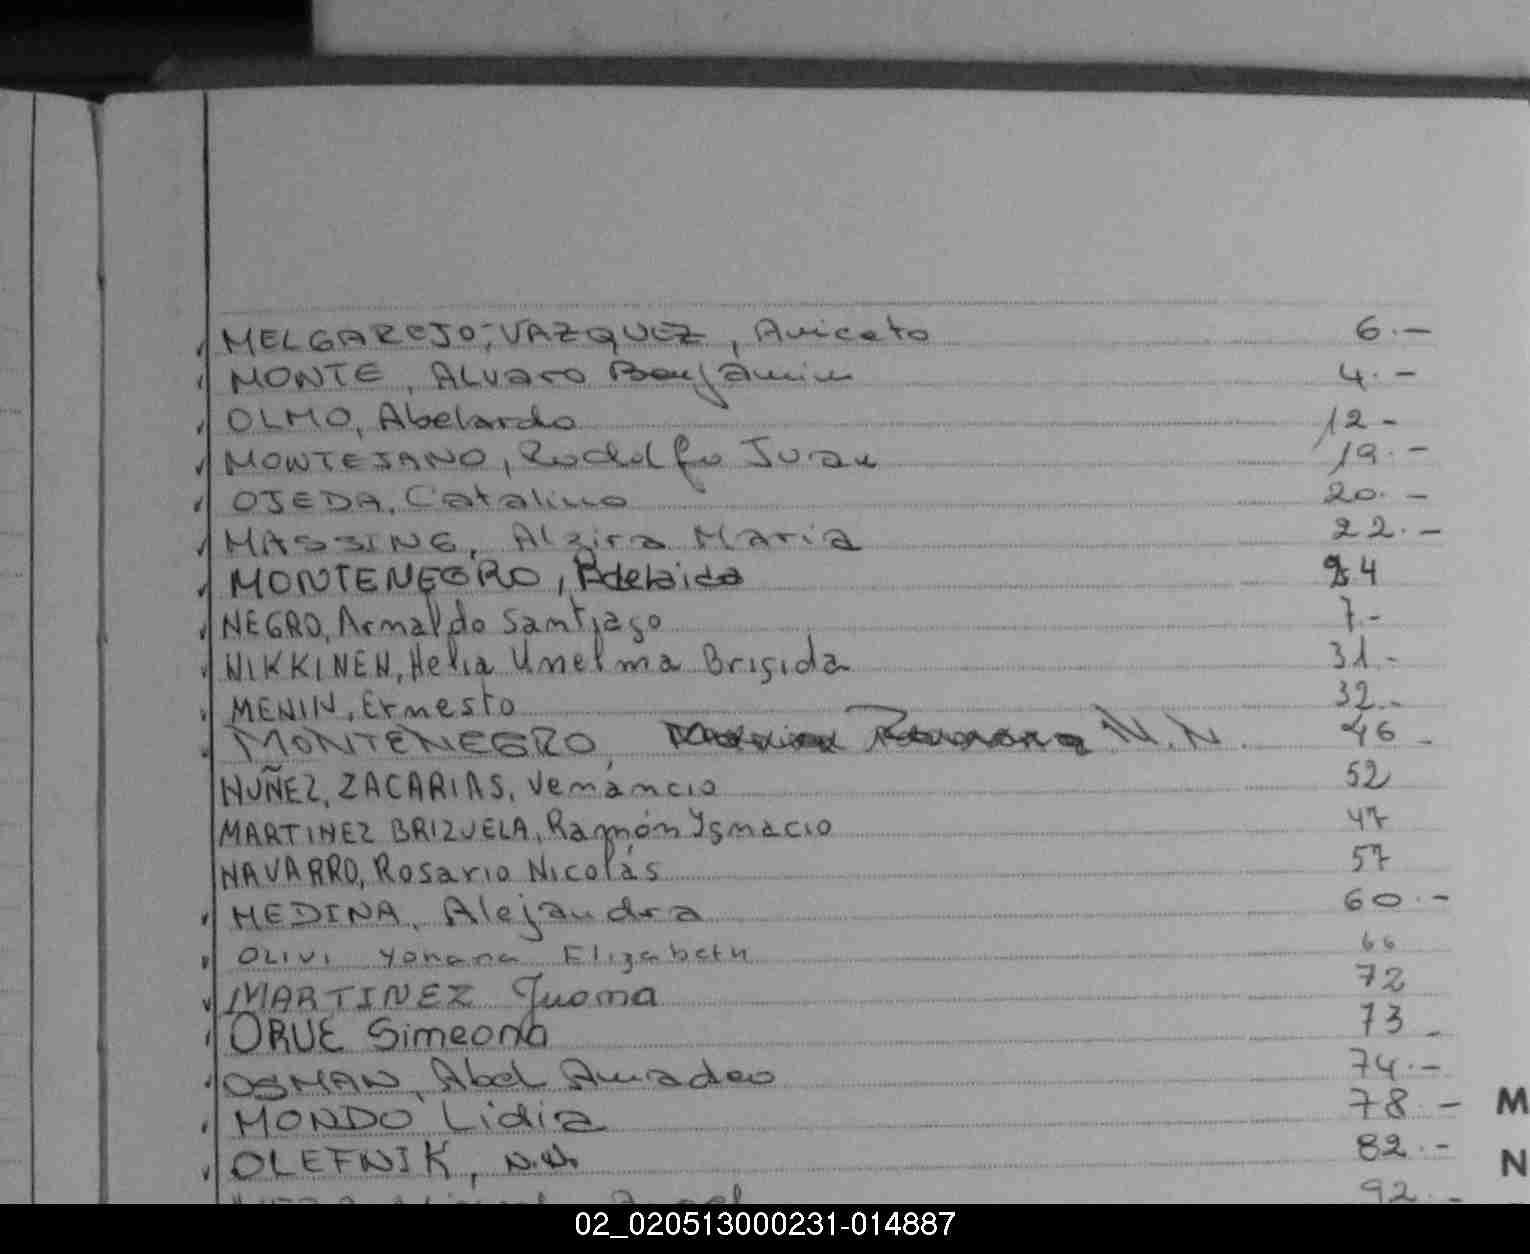 MELGAREJO-VAZQUEZ, Aniceto 6.-
MONTE, Alvaro Benjamin 4.-
OLMO, Abelardo 12-
MONTEJANO, Rodolfo Juan 19.-
OJEDA, Catalino 20.-
MASSINE, Alzira Maria 22.-
MONTENEGRO, Adelaida 24
NEGRO, Arnaldo Santiago 7.-
NIKKINEN, Helia Unelma Brigida 31.-
MENIN, Ernesto 32.-
MONTENEGRO, N.N. 46-
NUÑEZ, ZACARIAS, Venáncio 52
MARTINEZ BRIZUELA, Ramón Ygnacio 47
NAVARRO, Rosario Nicolás 57
MEDINA, Alejandra 60.-
OLIVI Yohana Elizabeth 66
MARTINEZ Juana 72
ORUE Simeona 73-
OSMAN, Abel Amadeo 74.-
MONDO Lidia 78-
M
OLEFNIK, N.N. 82.-
N
92.-
02_020513000231-014887